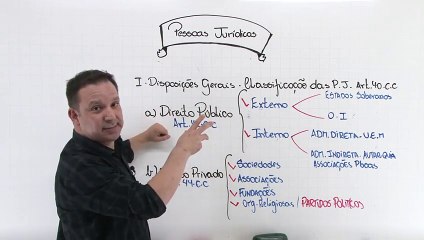 Pessoas Jurídicas
I. Disposições Gerais - Classificação das P.J. Art. 40 C.C
a) Direito Público
Externo
Estados Soberanos
O.I
Interno
ADM. DIRETA - U.E.M
ADM. INDIRETA. AUTARQUIA
ASSOCIAÇÕES Pbcas
b) Privado
44 C.C
Sociedades
Associações
Fundações
Org. Religiosas / PARTIDOS POLÍTICOS